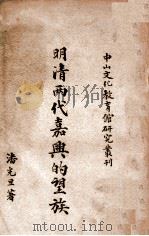 中山文化教育館研究叢刊
明清兩代嘉興的望族
潘光旦著